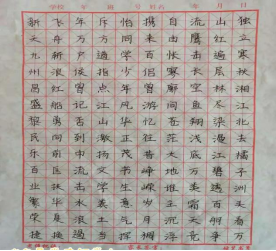 独立寒秋湘江北去橘子洲头看万
山红遍层林尽染漫江碧透百舸争
流鹰击长空鱼翔浅底万类霜天竞
自由怅寥廓问苍茫大地谁主沉浮
携来百侣曾游忆往昔峥嵘岁月稠
恰同学少年风华正茂书生意气挥
斥方遒指点江山激扬文字粪土当
年万户侯曾记否到中流击水浪遏
飞舟浪红船勇向前
新天九州昌盛黎民乐百业繁荣捷